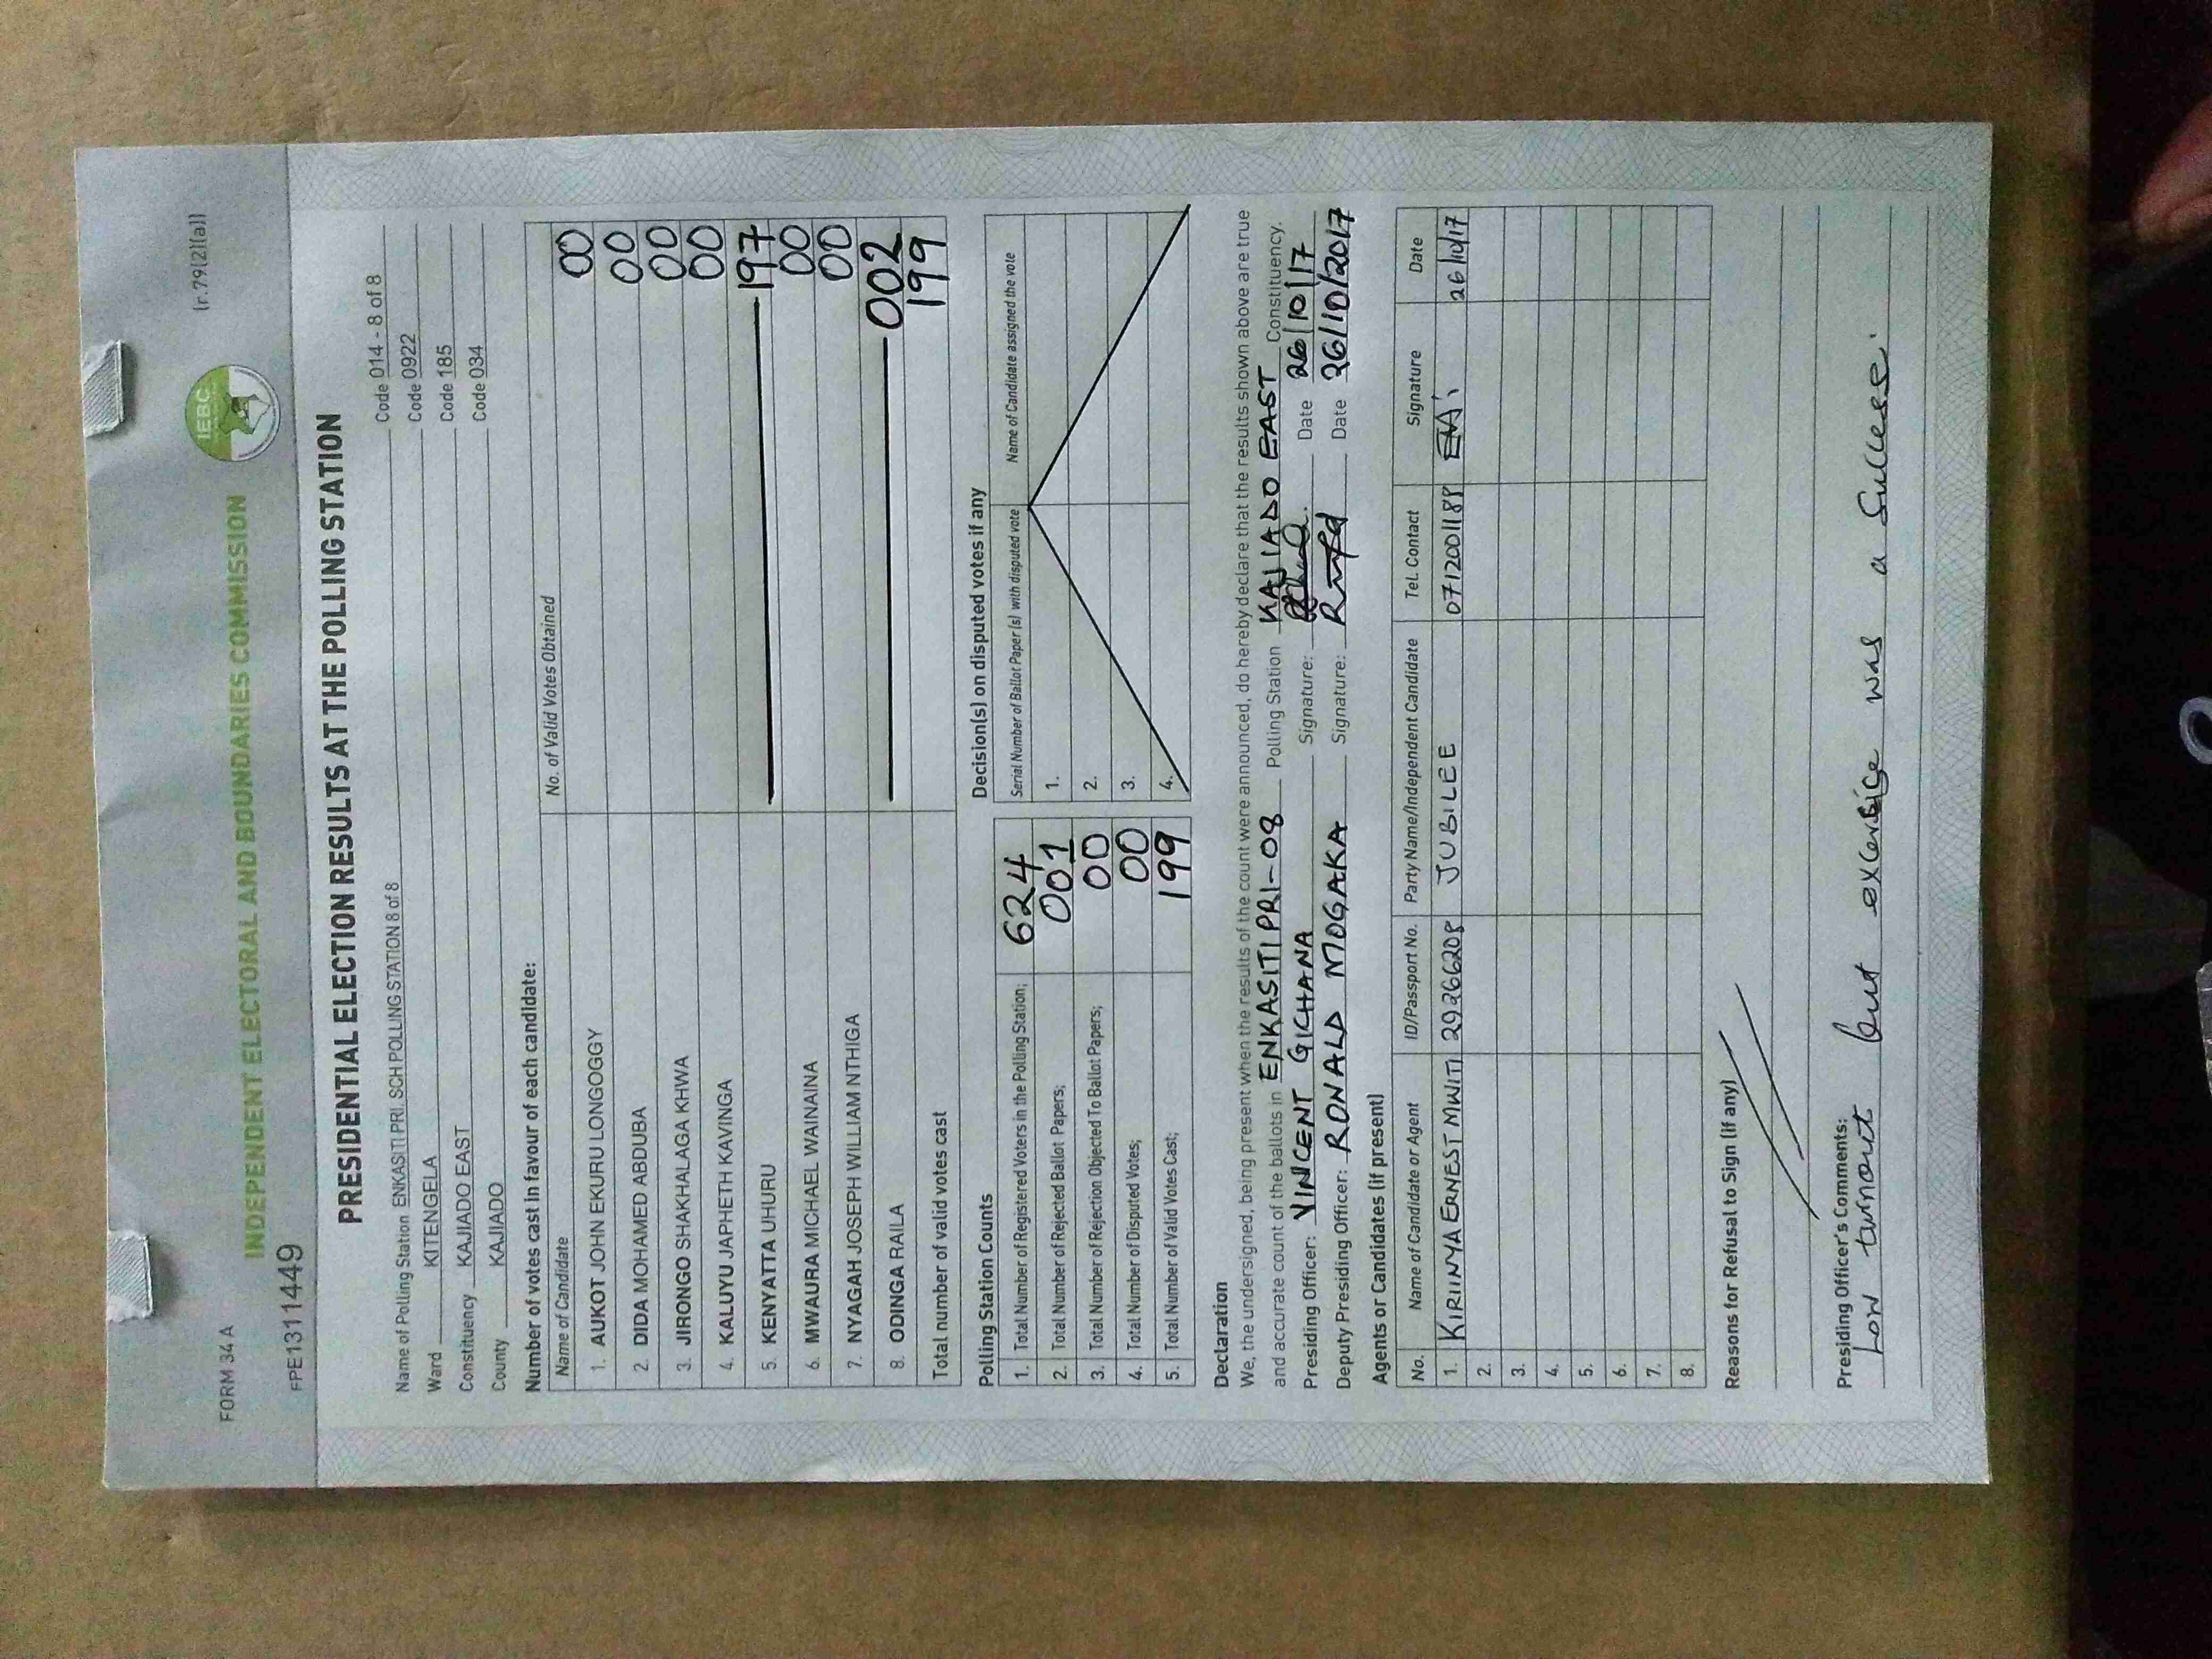 FORM 34 A
(r.79(2)(a))
IEBC
INDEPENDENT ELECTORAL AND BOUNDARIES COMMISSION
FPE1311449
PRESIDENTIAL ELECTION RESULTS AT THE POLLING STATION
Name of Polling Station ENKASITI PRI. SCH POLLING STATION 8 of 8 Code 014 - 8 of 8
Ward KITENGELA Code 0922
Constituency KAJIADO EAST Code 185
County KAJIADO Code 034
Number of votes cast in favour of each candidate:
Name of Candidate No. of Valid Votes Obtained
1. AUKOT JOHN EKURU LONGOGGY 00
2. DIDA MOHAMED ABDUBA 00
3. JIRONGO SHAKHALAGA KHWA 00
4. KALUYU JAPHETH KAVINGA 00
5. KENYATTA UHURU 197
6. MWAURA MICHAEL WAINAINA 00
7. NYAGAH JOSEPH WILLIAM NTHIGA 00
8. ODINGA RAILA 002
Total number of valid votes cast 199
Polling Station Counts
1. Total Number of Registered Voters in the Polling Station; 624
2. Total Number of Rejected Ballot Papers; 001
3. Total Number of Rejection Objected To Ballot Papers; 00
4. Total Number of Disputed Votes; 00
5. Total Number of Valid Votes Cast; 199
Decision(s) on disputed votes if any
Serial Number of Ballot Paper (s) with disputed vote Name of Candidate assigned the vote
1.
2.
3.
4.
Declaration
We, the undersigned, being present when the results of the count were announced, do hereby declare that the results shown above are true
and accurate count of the ballots in ENKASITI PRI-08 Polling Station KAJIADO EAST Constituency.
Presiding Officer: VINCENT GICHANA Signature: Date 26/10/17
Deputy Presiding Officer: RONALD MOGAKA Signature: Date 26/10/2017
Agents or Candidates (if present)
No. Name of Candidate or Agent ID/Passport No. Party Name/Independent Candidate Tel. Contact Signature Date
1. KIRIINYA ERNEST MWITI 29266208 JUBILEE 0712001188 26/10/17
2.
3.
4.
5.
6.
7.
8.
Reasons for Refusal to Sign (if any)
Presiding Officer's Comments:
Low turnout but exercise was a success.